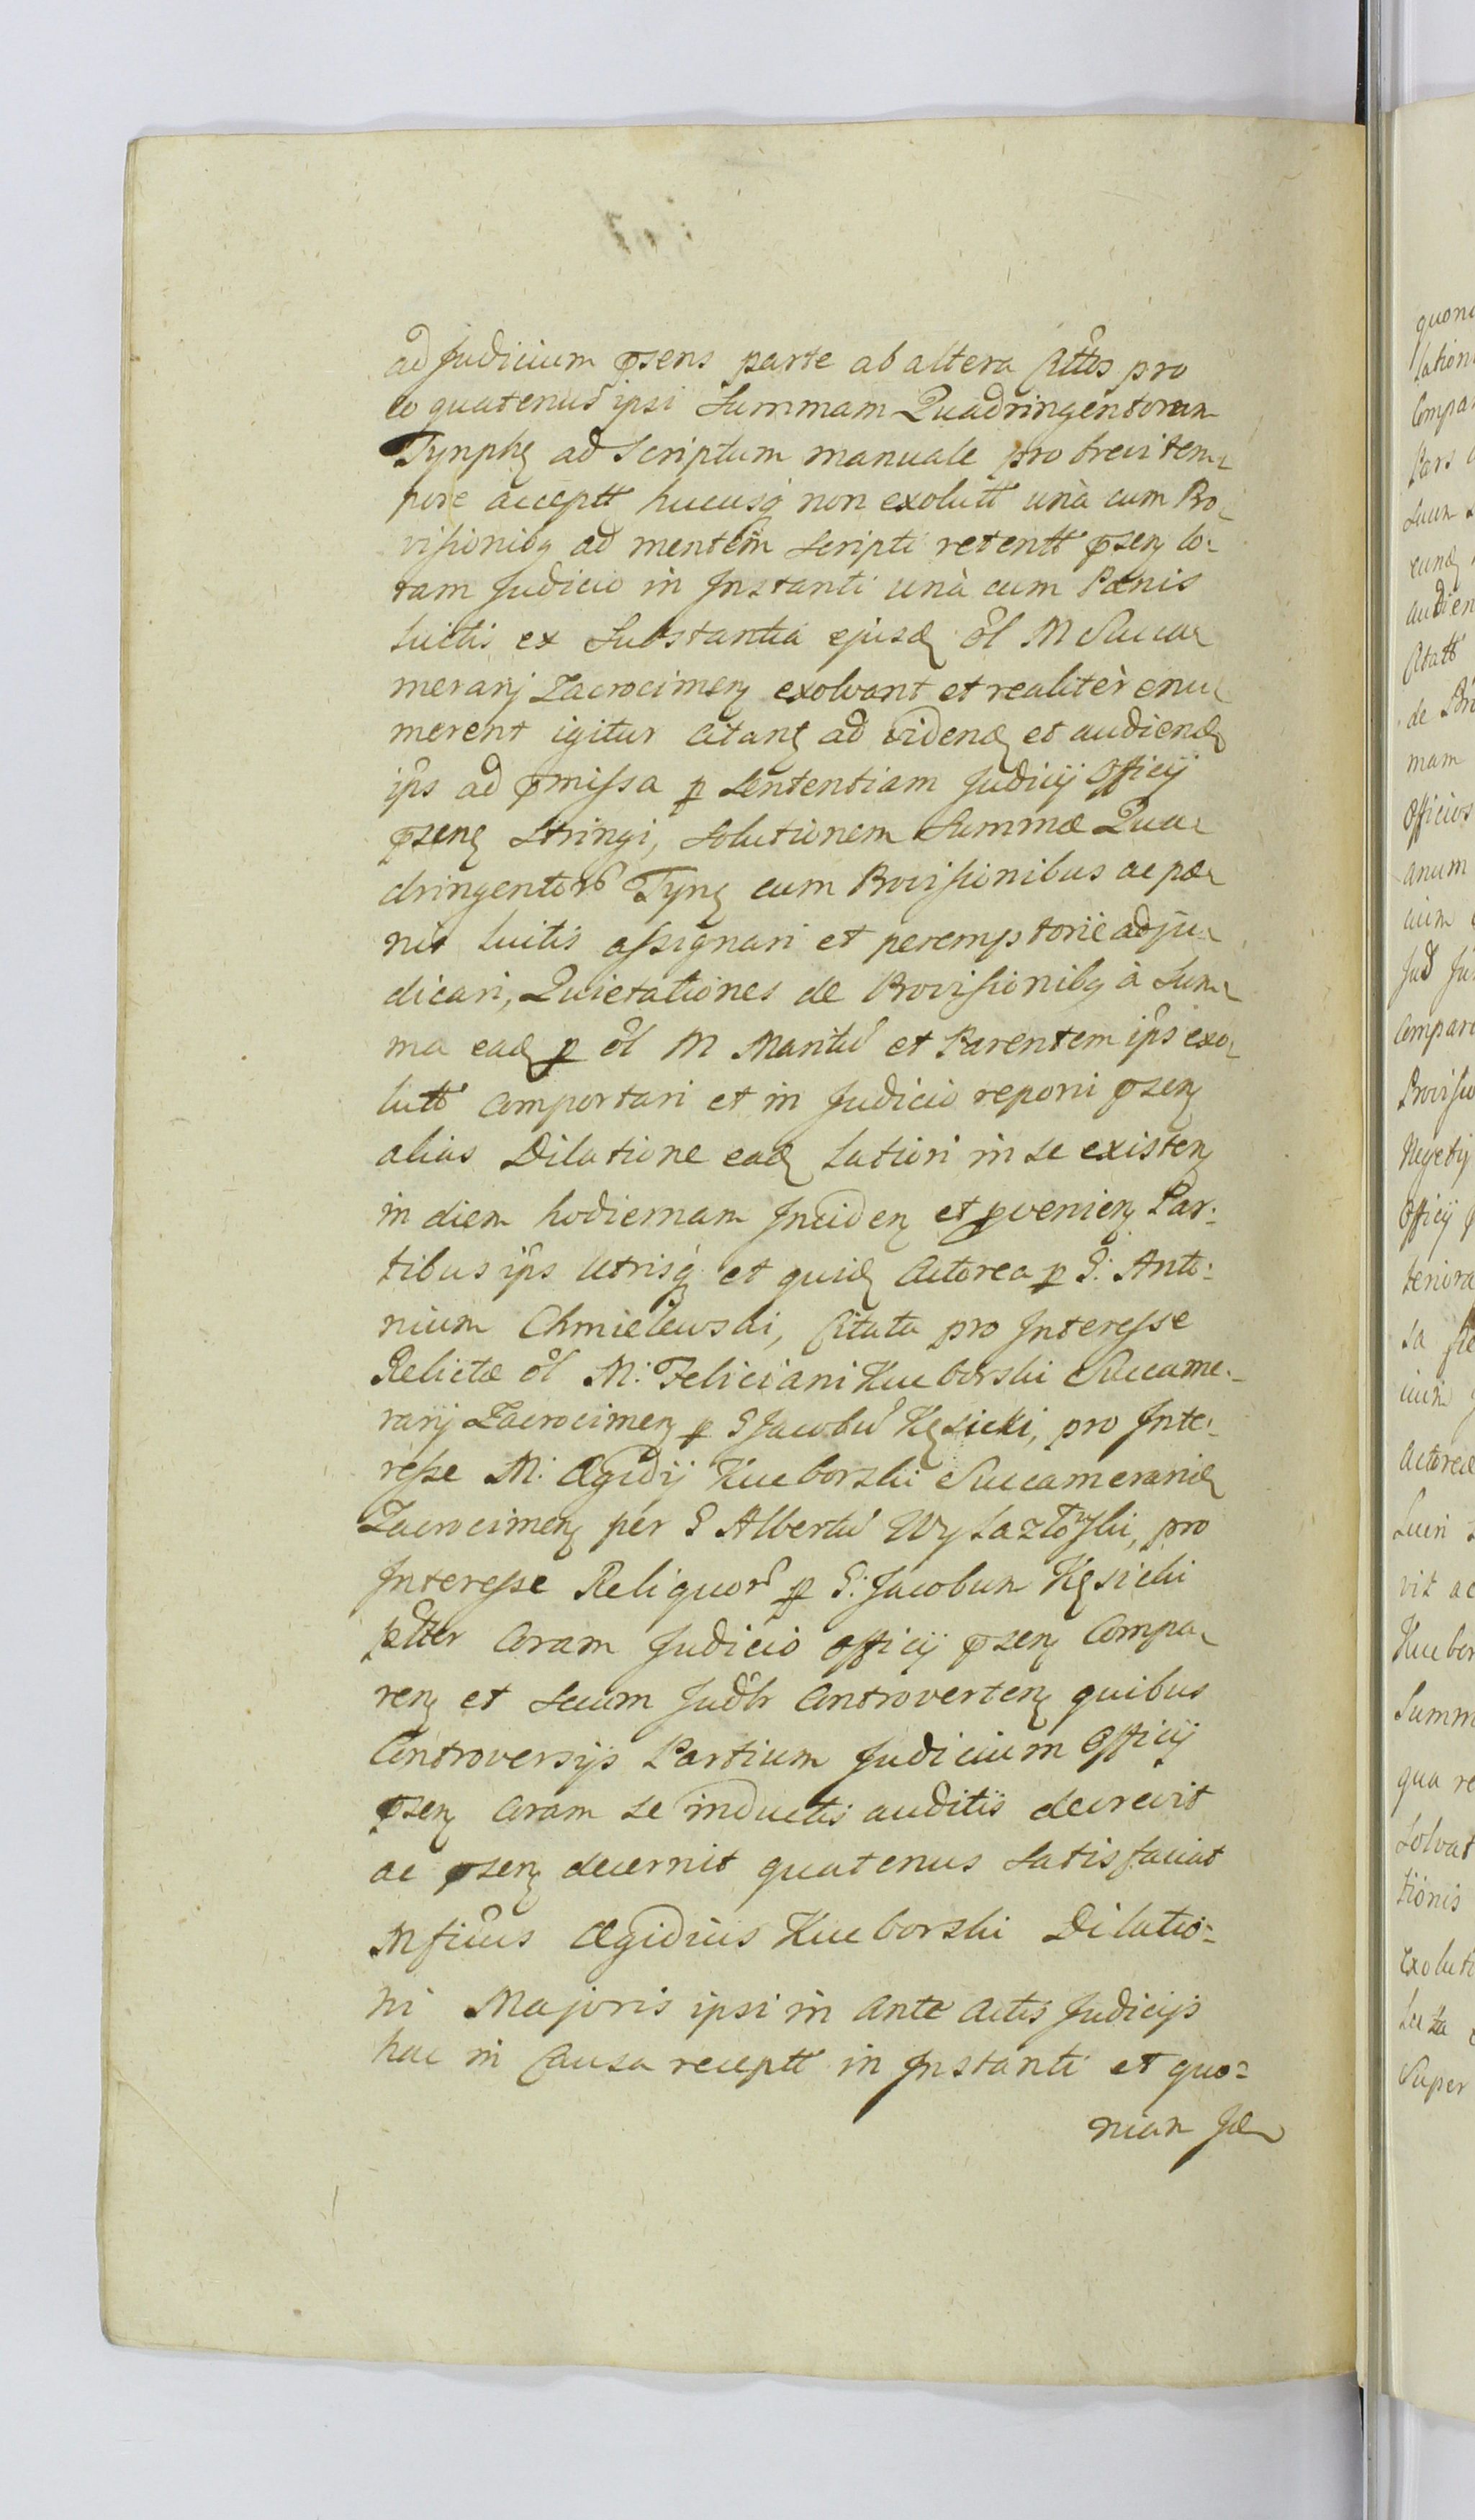 ad Judicium psens parte ab altera Cttos pro
eo quatenus ipsi Summam Quadringentorum
Tynphę ad Scriptum manuale pro brevi tem-
pore acceptt hucusq non exolutt unà cum Pro-
visionibq ad mentem Scripti retentt psenę co-
ram Judicio in Instanti unà cum Pænis
Luitis ex Substantia ejusdę ol M Succa-
merarij Zacrocimenę exolvant et realitèr enu-
merent igitur Citantę ad videndę et audiendę
ips ad pmissa p Sententiam Judicij Officij
psenę Stringi, Solutionem Summæ Qua-
dringentor Tynę cum Provisionibus ac pæ-
nis Luitis assignari et peremptorie adju-
dicari, Quietationes de Provisionibq à Sum-
ma eadę p ol M Maritu et Parentem ips exo-
lutt Comportari et in Judicio reponi psenę
alias Dilatione eadę Latiori in se existenę
in diem hodiernam Incidenę et pvenienę Par-
tibus ips Utrisq et quidę Actorea p G: Anto-
nium Chmielewski, Citata pro Interesse
Relictæ ol M: Feliciani Kucborski Succame-
rarij Zacrocimenę p G Jacobu Kęsicki, pro Inte-
resse M: Ægidij Kucborski Succameranidę
Zacrocimenę per G Albertu pro
Interesse Reliquor p G: Jacobum Kęsicki
ptter Coram Judicio Officij psenę Compa-
renę et Secum Judlr Controvertenę quibus
Controversijs Partium Judicium Officij
psenę Coram se inductis auditis decrevit
ac psenę decernit quatenus Satisfaciat
Mficus Ægidius Kucborski Dilatio-
ni Majoris ipsi in Ante Actis Judicijs
hac in Causa receptt in Instanti et quo-
niam